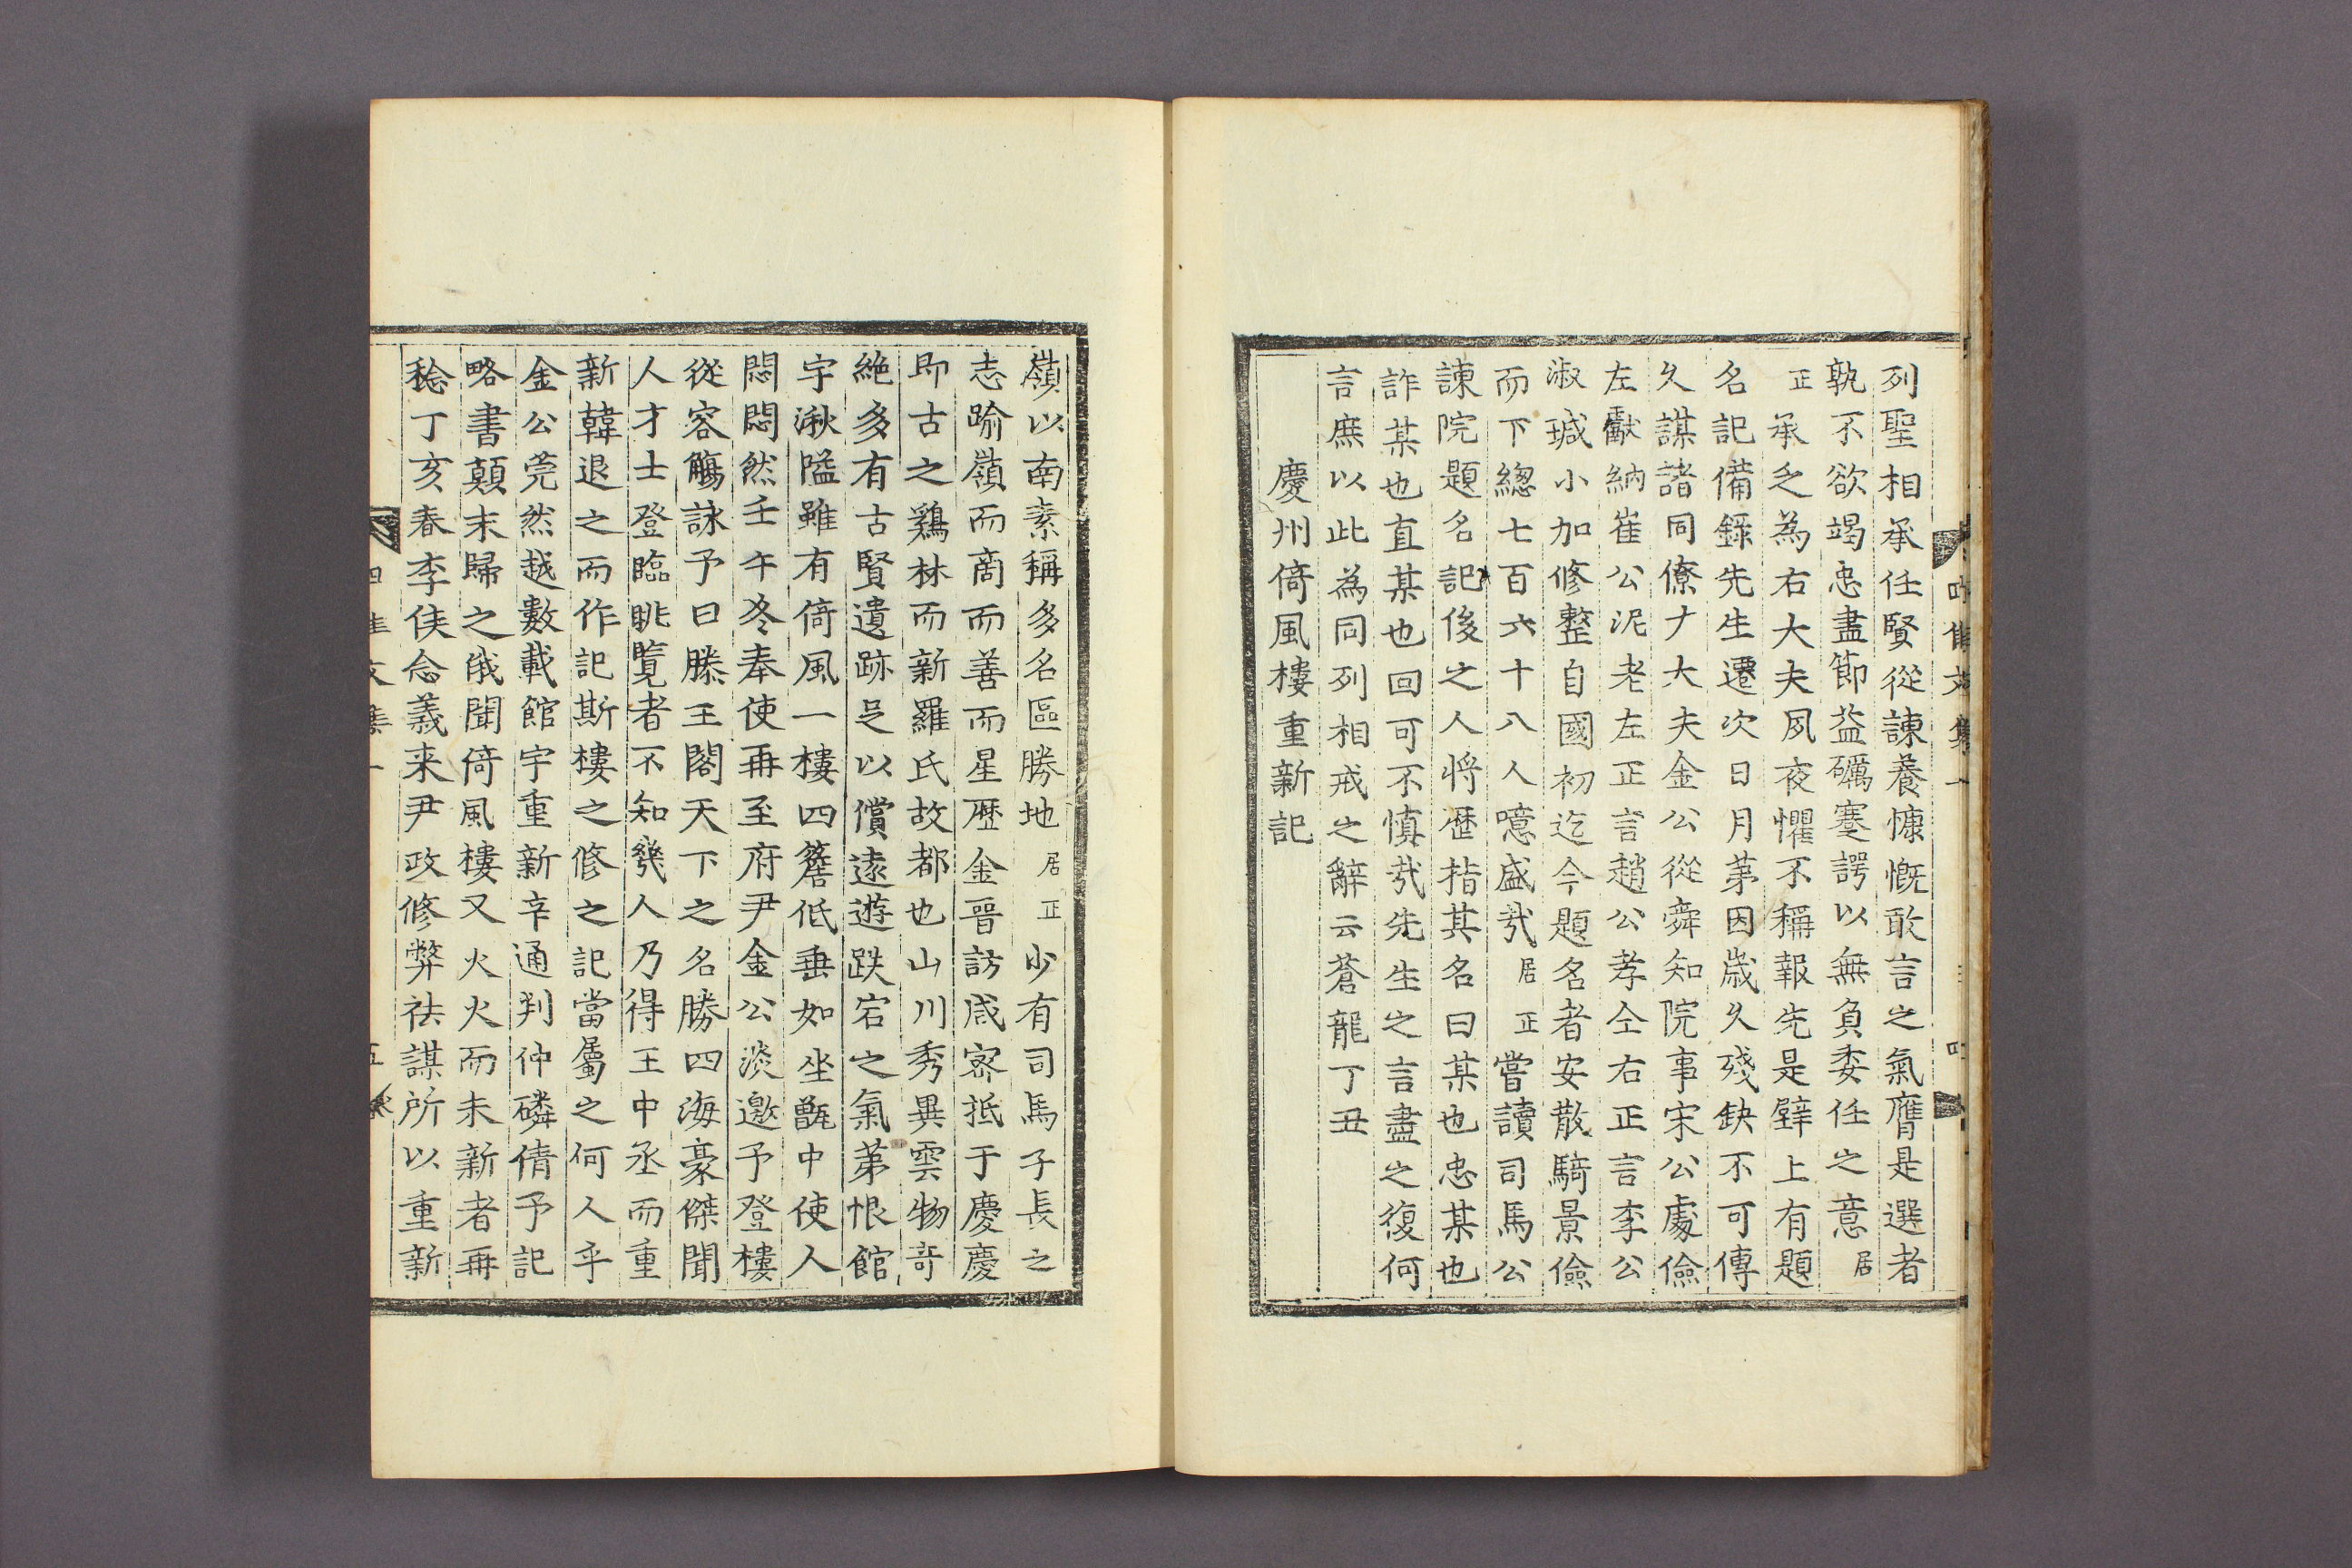 列聖相承任賢從諫養慷慨敢言之氣膺是選者
孰不欲竭忠盡節益礪蹇諤以無負委任之意居
正承乏為右大夫夙夜懼不稱報先是壁上有題
名記備錄先生遷次日月苐因歲久殘缺不可傳
久謀諸同僚𠂇大夫金公從舜知院事宋公處儉
左獻納崔公泥老左正言趙公孝仝右正言李公
淑瑊小加修整自國初迄今題名者安散騎景儉
而下緫七百六十八人噫盛㢤居正嘗讀司馬公
諫院題名記後之人将歷指其名曰某也忠某也
詐某也直某也回可不慎㢤先生之言盡之復何
言庶以此為同列相戒之辭云蒼龍丁丑
慶州倚風樓重新記
嶺以南素稱多名區勝地居正少有司馬子長之
志踰嶺而商而善而星歷金晉訪咸密抵于慶慶
即古之鷄林而新羅氏故都也山川秀異雲物奇
絶多有古賢遺跡足以償遠遊跌宕之氣苐恨館
宇湫隘雖有倚風一樓四簷低垂如坐甑中使人
悶悶然壬午冬奉使再至府尹金公淡邀予登樓
從容觴詠予曰滕王閣天下之名勝四海豪傑聞
人才士登臨眺覽者不知幾人乃得王中丞而重
新韓退之而作記斯樓之修之記當屬之何人乎
金公莞然越數載館宇重新辛通判仲磷倩予記
略書顛末歸之俄聞倚風樓又火火而未新者再
稔丁亥春李侯念義来尹政修弊祛謀所以重新